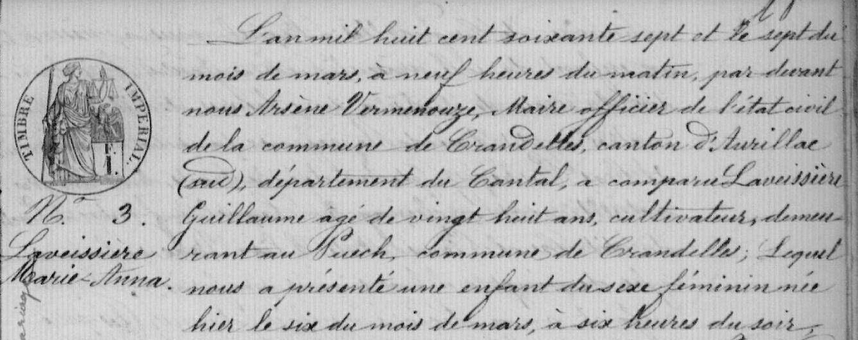 L'an mil huit cent soixante sept et le sept du
mois de mars, à neuf heures du matin, par devant
nous Arsène Vermenouze, Maire officier de l'état civil
de la commune de Crandelles, canton d'Aurillac
(sud), département du Cantal, a comparu Laveissière
Guillaume agé de vingt huit ans, cultivateur, demeu-
rant au Puech, commune de Crandelles; Lequel
nous a présenté une enfant du sexe féminin née
hier le six du mois de mars, à six heures du soir,
TIMBRE IMPÉRIAL.
N.º 3.
Laveissiere
Marie-Anna.